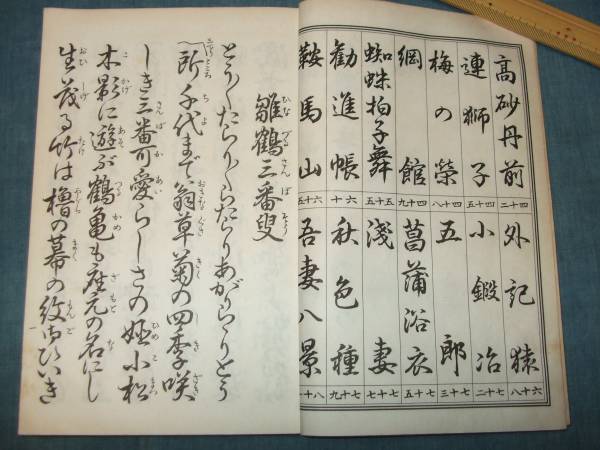 高砂丹前 四十二
連獅子 四十五
梅の榮 四十八
綱館 四十九
蜘蛛拍子舞 五十五
勸進帳 六十
鞍馬山 六十五
外記猿 六十八
小鍛冶 七十二
五郎 七十三
菖蒲浴衣 七十五
淺妻 七十七
秋色種 七十九
吾妻八景 八十一
雛鶴三番叟
とう〳〵たらり〳〵らたりあがらゝりとう
〽所千代まで翁草菊の四季咲
しき三番可愛らしさの姫小松
木影に遊ぶ鶴亀も座元の名にし
生茂る竹は櫓の幕の紋御ひいき